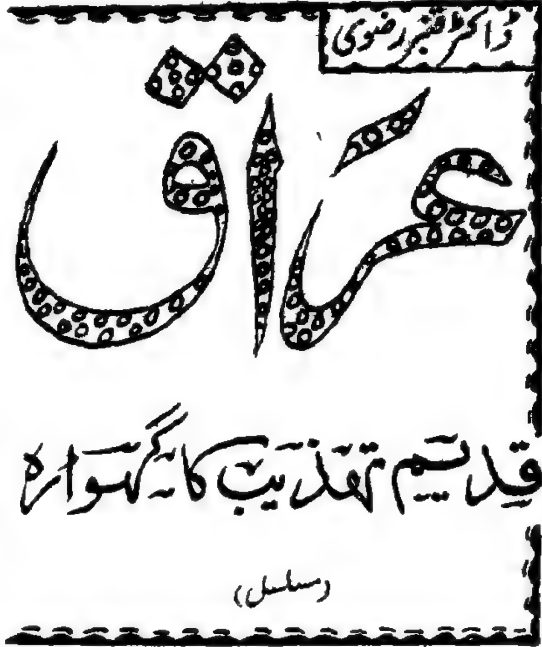 ڈاکٹر قنبر رضوی
عراق
قدیم تہذیب کا گہوارہ
(مسلسل)